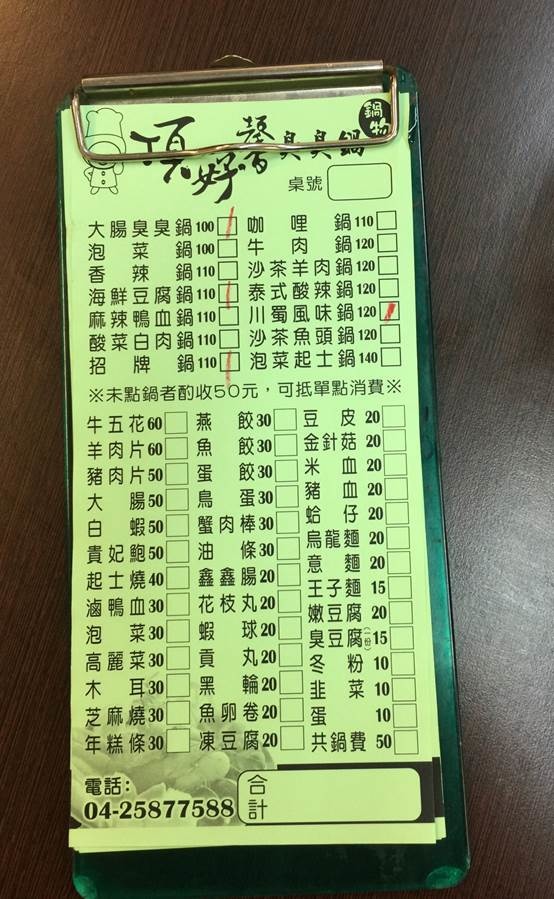 鍋物
頂好馨臭臭鍋
桌號
大腸臭臭鍋100 咖哩鍋110
泡菜鍋100 牛肉鍋120
香辣鍋110 沙茶羊肉鍋120
海鮮豆腐鍋110 泰式酸辣鍋120
麻辣鴨血鍋110 川蜀風味鍋120
酸菜白肉鍋110 沙茶魚頭鍋120
招牌鍋110 泡菜起士鍋140
※未點鍋者酌收50元，可抵單點消費※
牛五花60 燕餃30 豆皮20
羊肉片60 魚餃30 金針菇20
豬肉片50 蛋餃30 米血20
大腸50 鳥蛋30 豬血20
白蝦50 蟹肉棒30 蛤仔20
貴妃鮑50 油條30 烏龍麵20
起士燒40 鑫鑫腸20 意麵20
滷鴨血30 花枝丸20 王子麵15
泡菜30 蝦球20 嫩豆腐20
高麗菜30 貢丸20 臭豆腐(一份)15
木耳30 黑輪20 冬粉10
芝麻燒30 魚卵卷20 韭菜10
年糕條30 凍豆腐20 蛋10
共鍋費50
電話：
04-25877588
合計